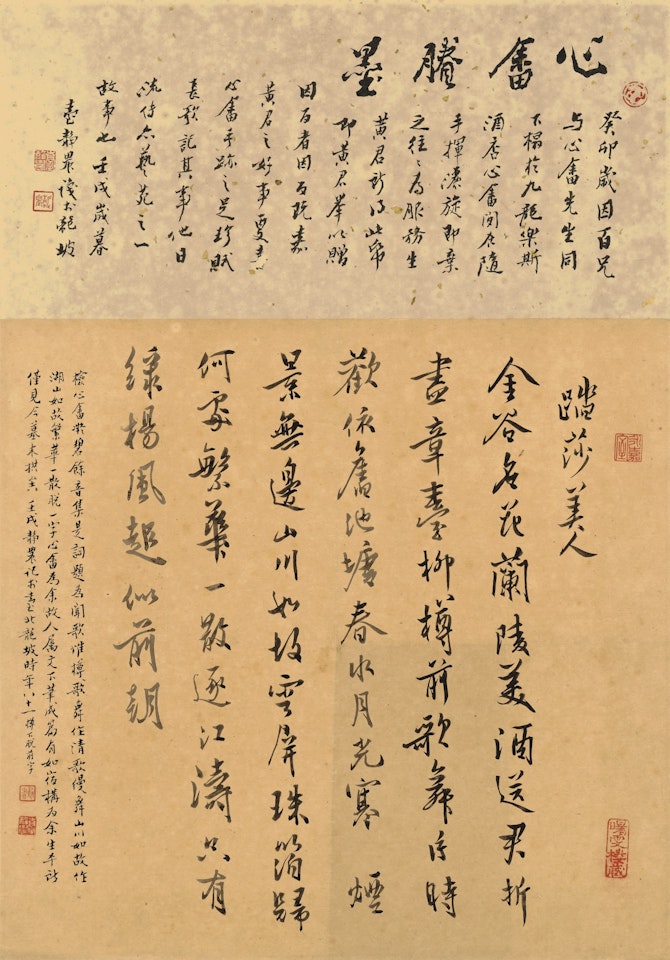 心畬賸墨
癸卯歲因百兄
与心畬先生同
下榻於九龍樂斯
酒店心畬閒居隨
手揮灑旋即棄
之往往為服務生
黃君所得此帋
即黃君舉以贈
因百者因百既嘉
黃君之好事更喜
心畬手跡之足珍賦
長歌記其事他日
流傳亦藝苑之一
故事也壬戌歲暮
臺靜農識於龍坡
踏莎美人
金谷名花蘭陵美酒送君折
盡章臺柳樽前歌舞片時
歡依舊池塘春水月光寒 煙
景無邊山川如故雲屏珠箔歸
何處繁華一散逐江濤只有
綠楊風起似前朝
檢心畬凝碧餘音集是詞題為聞歌惟樽歌舞作清歌慢舞山川如故作
湖山如故繁華一散脫一字心畬為余故人屬文下筆成篇有如宿構為余生平所
僅見今墓木拱矣壬戌靜農記於臺北龍坡時年八十一 樽下脫前字